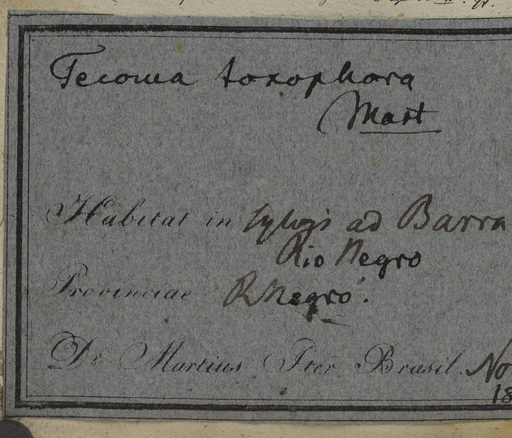 Tecoma toxophora
Mart
Habitat in sylvis ad Barra
Rio Negro
Provinciae R Negro.
Dr. Martius Iter Brasil. No
18